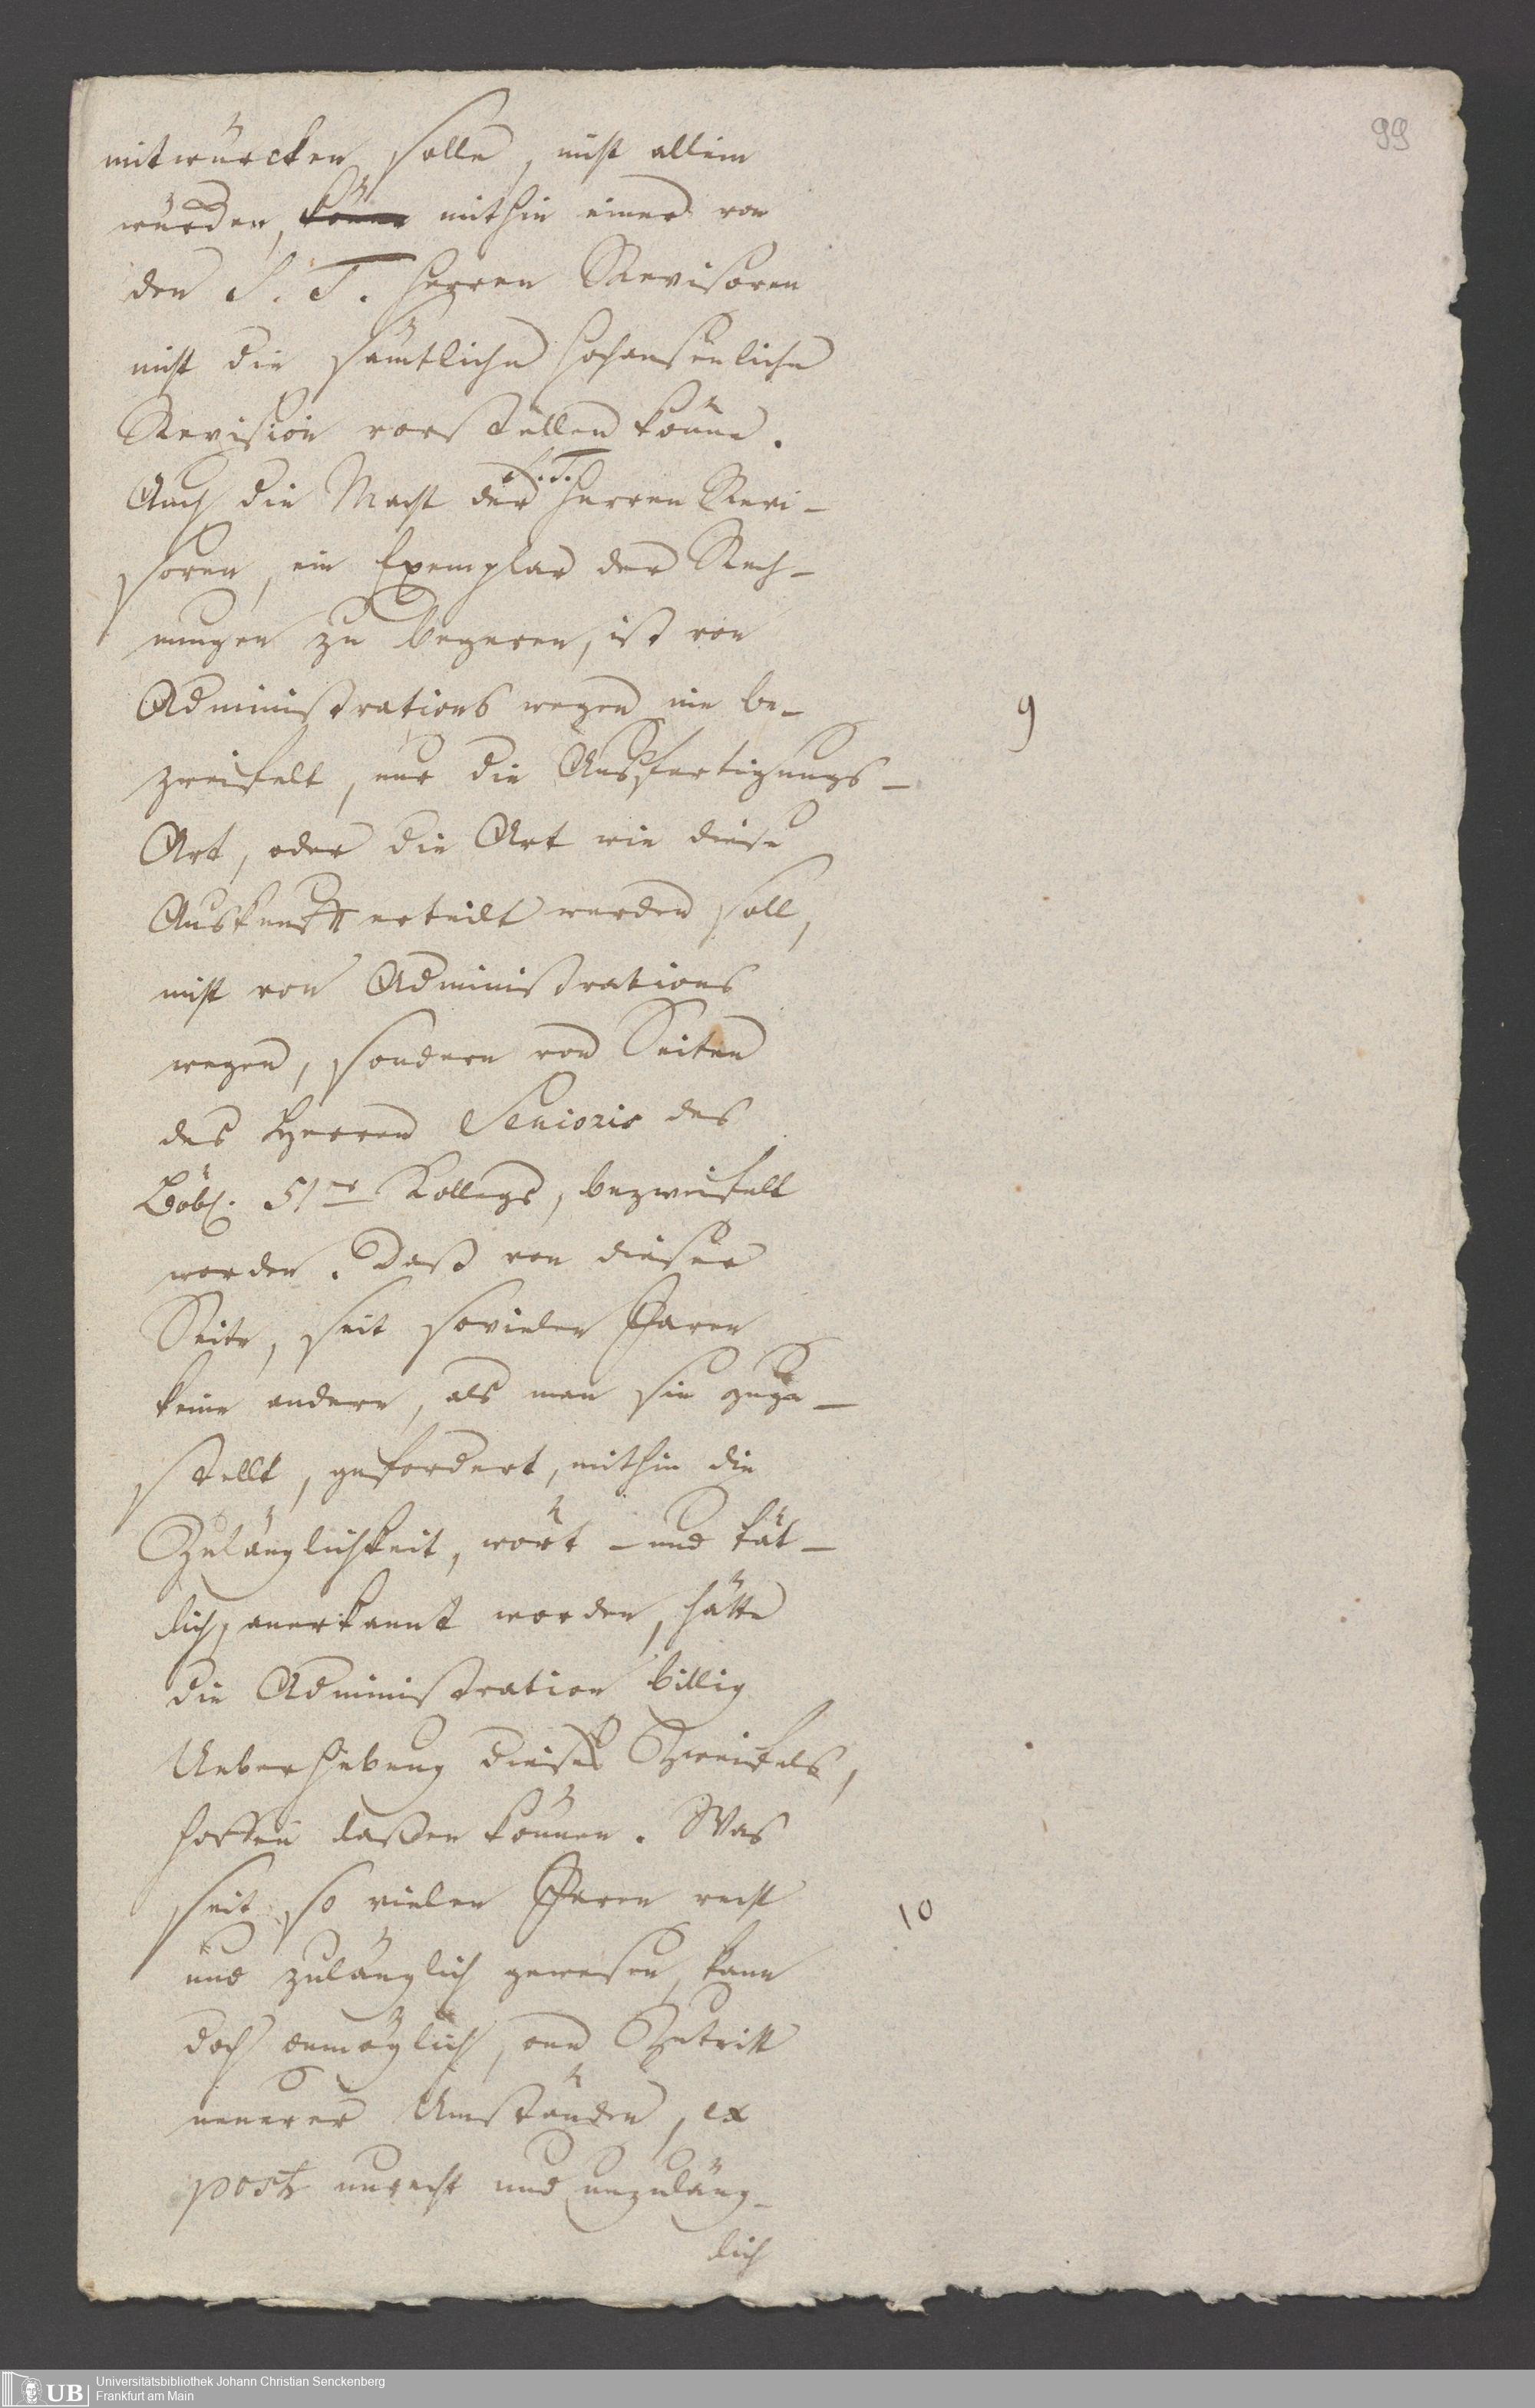 99
mitwürcken solle, nicht allein
würden, könne mithin einer von
den S. T. Herren Revisoren
nicht die sämtliche hochansenliche
Revision vorstellen könne.
Auch die Macht der S. T. Herren Revi-
soren, ein Exemplar der Rech-
nungen zu begeren, ist von
Administrations wegen nie be-
9
zweifelt, nur die Ausfertigungs-
Art, oder die Art wie diese
Auskunft erteilt werden soll,
nicht von Administrations
wegen, sondern von Seiten
des Herren Senioris des
Löbl. 51er Kollegs, bezweifelt
worden. Daß von dieser
Seite, seit sovielen Jaren
keine andere, als man sie zuge-
stellt, gefordert, mithin die
Zulänglichkeit, wört- und tät-
lich, anerkannt worden, hätte
die Administration billig
Ueberhebung dieses Zweifels,
hoffen laßen können. Was
seit so vielen Jaren recht
10
und zulänglich gewesen, kann
doch onmöglich, one Zutritt
neuerer Umständen, ex
post unrecht und unzuläng-
lich
UB Universitätsbibliothek Johann Christian Senckenberg
Frankfurt am Main